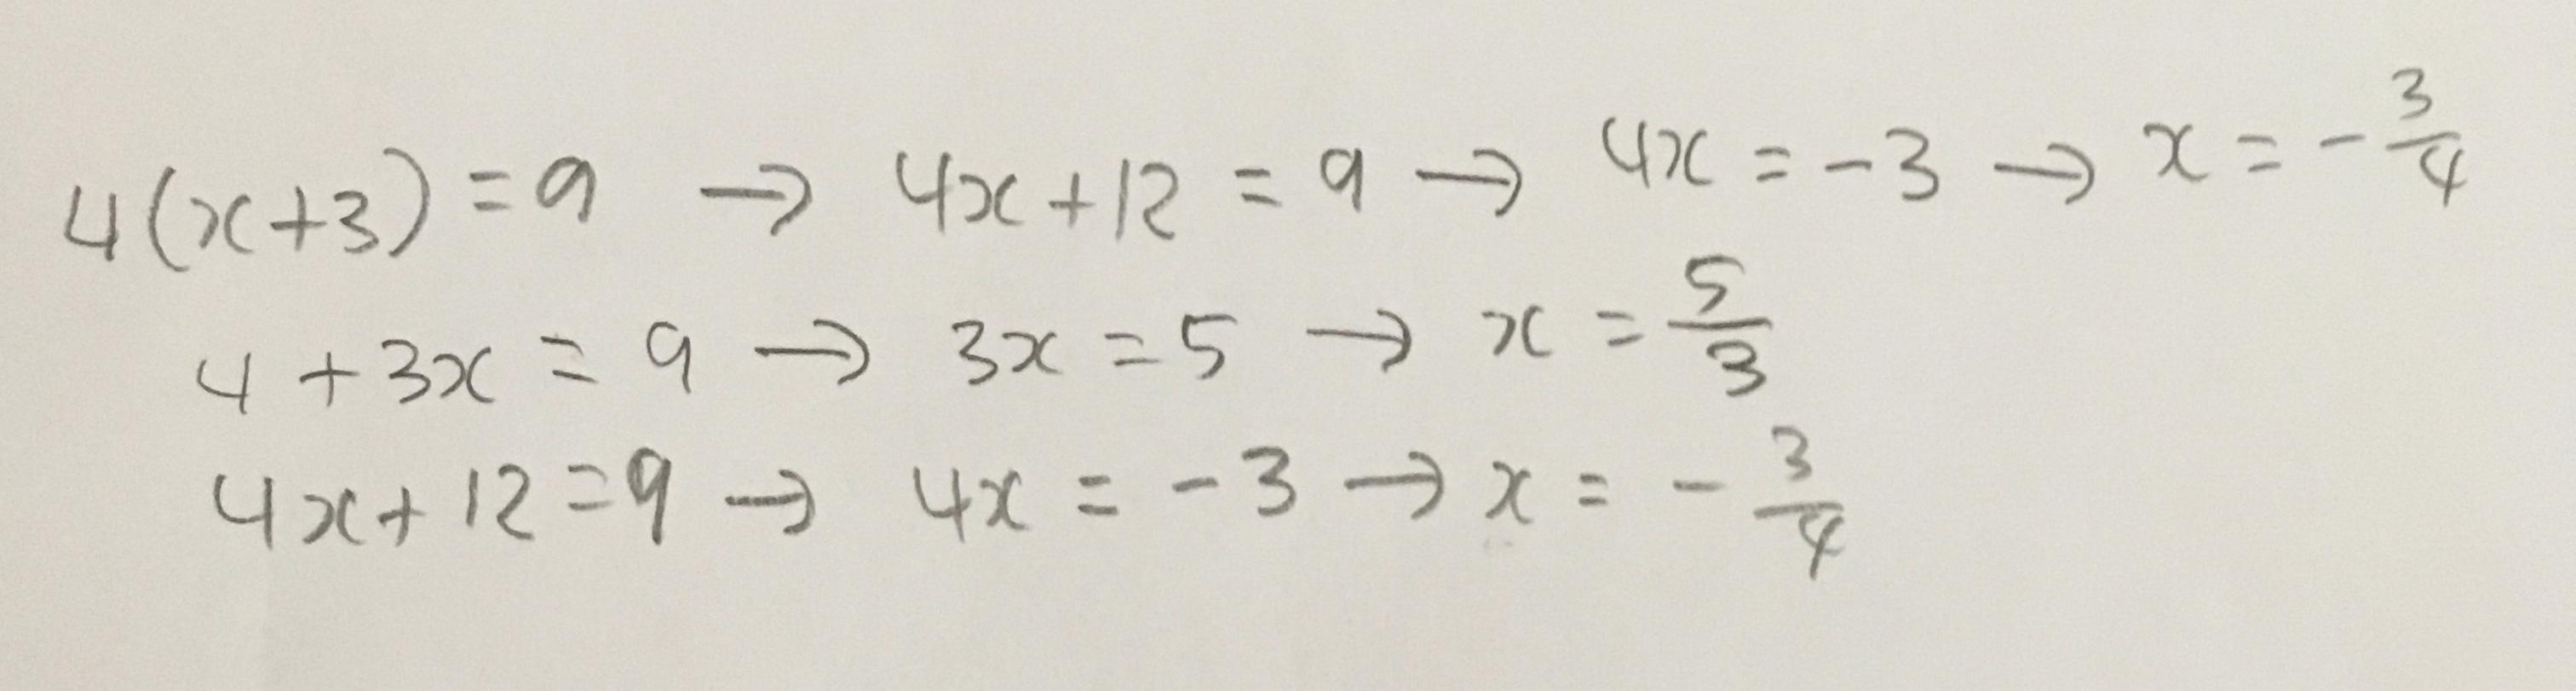 4(x+3) = 9 → 4x+12 = 9 → 4x = -3 → x = -3/4
4 + 3x = 9 → 3x = 5 → x = 5/3
4x + 12 = 9 → 4x = -3 → x = -3/4